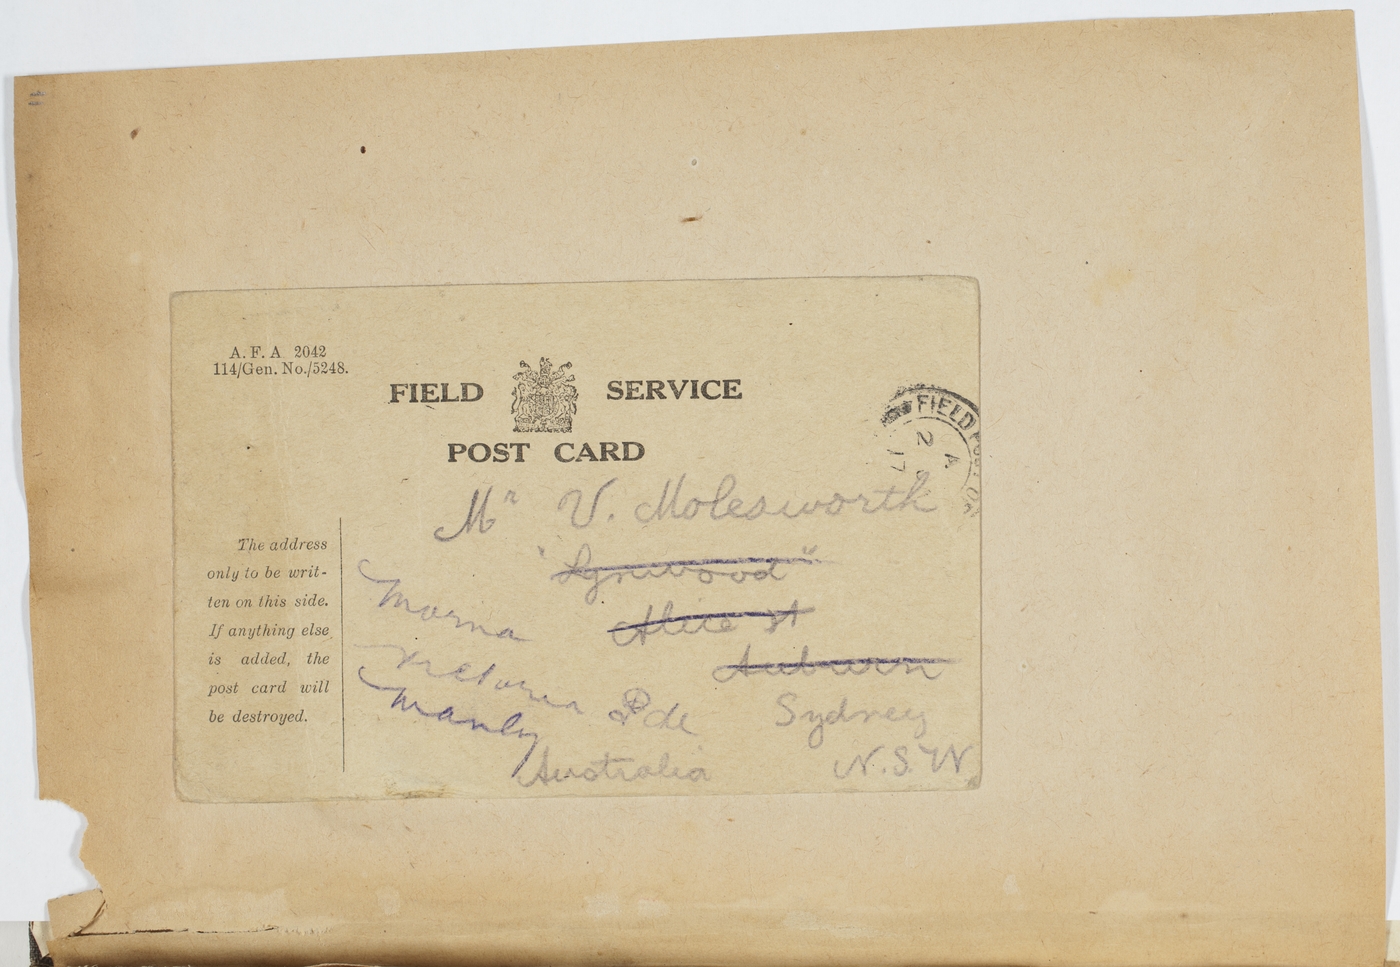 A. F. A 2042
114/Gen. No./5248.
FIELD SERVICE
POST CARD
FIELD
2
A
17
Mr V. Molesworth
"Lynwood"
Alice St
Auburn
Morna
Victoria Pde
Manly
Sydney
Australia
N.S.W
The address
only to be writ-
ten on this side.
If anything else
is added, the
post card will
be destroyed.